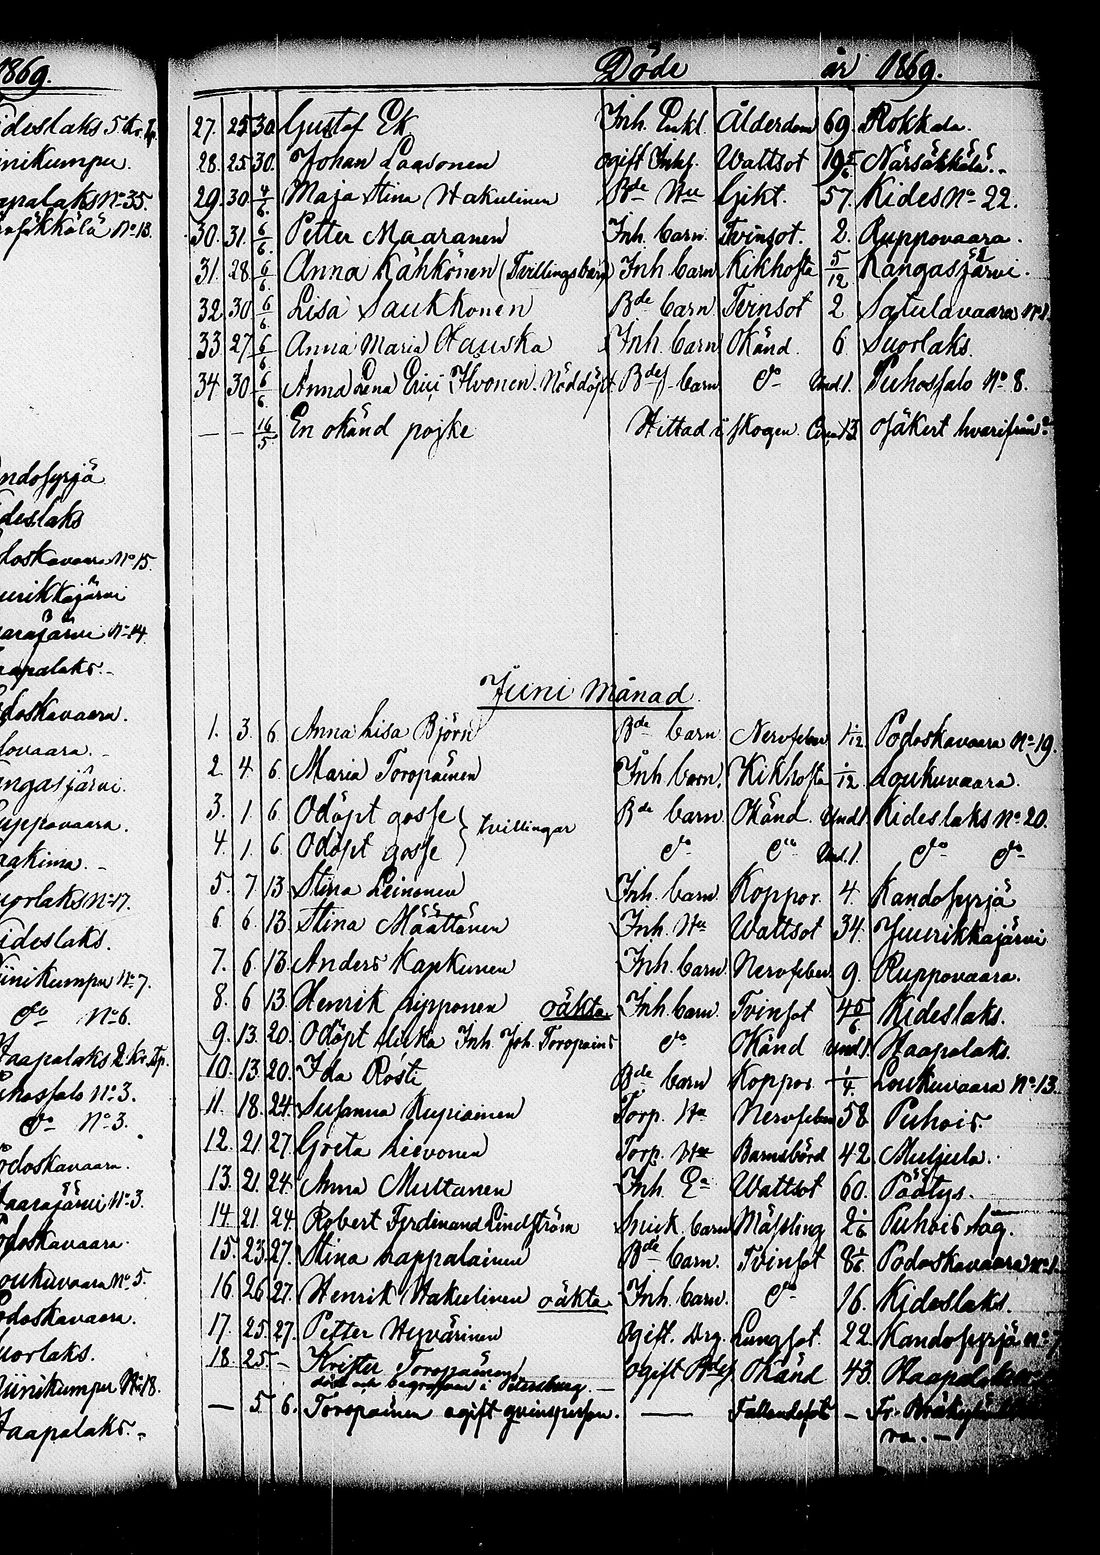 1869.
ideslaks 5 
inikumpu.
apalaks No 35.
No 13.
ndosyrjä
deslaks
doskavaara No 15.
uurikkajärvi
arajärvi No 14.
aapalaks.-
doskavaara.
ovaara.-
ngasjärvi.
uppovaara.
aakima.-
uorlaks No 17.
ideslaks.
iinikumpu No 7.
do No 6.
Haapalaks 2
uhossalo No 3.
do No 3.
odoskavaara.
aarajärvi No 3.
odoskavaara.
oukuvaara No 5.
odoskavaara.
uorlaks.
iinikumpu No 18.
aapalaks.-
Döde år 1869.
27. 25 30 Gustaf Ek Inh. Enkl. Ålderdom 69. Rokkala.
28. 25 30. Johan Laasonen ogift Inhs. Wattsot 19 5/6 Närsäkkälä.
29. 30 4/6. Maja Stina Hakulinen Bde Hu Gikt. 57. Kides No 22.
30. 31. 6/6 Petter Maaranen Inh. barn. Tvinsot. 2. Ruppovaara.
31. 28. 6/6 Anna Kähkönen (Tvillingsbarn) Inh barn Kikhosta 5/12 Kangasjärvi.
32. 30 6/6 Lisa Saukkonen Bde barn Tvinsot 2 Satulavaara
33. 27 6/6 Anna Maria Hauska Inh. barn Okänd. 6 Suorlaks.
34 30 6/6. Anna Lena Hvonen. Nöddöpt Bdes barn do Und 1. Puhossalo No 8.
— — 16/5 En okänd pojke Hittad i skogen. Circa 13 osäkert hvarifrån.
Juni Månad
1. 3. 6. Anna Lisa Björn Bde barn Nervfeber 1/12 Podoskavaara No 19.
2 4. 6. Maria Toropainen Inh. barn. Kikhosta 1/12 Loukuvaara.
3. 1. 6. Odöpt gosse tvillingar Bde barn Okänd Und 1 Kideslaks No 20.
4. 1. 6. Odöpt gosse do do Und. 1. do do
5. 7. 13. Stina Leinonen Inh. barn. Koppor. 4. Kandosyrjä
6 6. 13. Stina Määttänen Inh. Ha Wattsot 34. Juurikkajärvi
7. 6. 13. Anders Kapkunen Inh. barn Nervfeber 9. Ruppovaara.
8. 6 13. Henrik Lipponen oäkta Inh barn. Tvinsot 4 5/6 Kideslaks.
9. 13. 20. Odöpt flicka Inh. Joh. Toropainens do Okänd und 1. Haapalaks.
10. 13 20. Ida Rösti Bde barn Koppor 1/4. Loukuvaara No 13.
11. 18. 24. Susanna Kupiainen Torp. Ha Nervfeber 58 Puhois.
12. 21 27. Greta Lievonen Torp. Hu Barnsbörd 42. Muljula.
13. 21. 24. Anna Multanen Inh. Ea Wattsot 60. Päätys.
14. 21. 24. Robert Ferdinand Lindström Snick. barn Mässling 2 1/6 Puhois såg.
15. 23 27. Stina Lappalainen Bde barn. Tvinsot 8 Podoskavaara
16 26 27. Henrik Hakulinen oäkta Inh. barn. do 16. Kideslaks.
17. 25. 27. Petter Hyvärinen Ogift. Drg. Lungsot. 22. Kandosyrjä
18. 25 – Krister Toropainen ogift Okänd 43. Haapalaks
död och begrafven i Petersburg. —
— 5. 6. Toropainen ogift qvinsperson. — Fallandesot — Fr.
ra. —